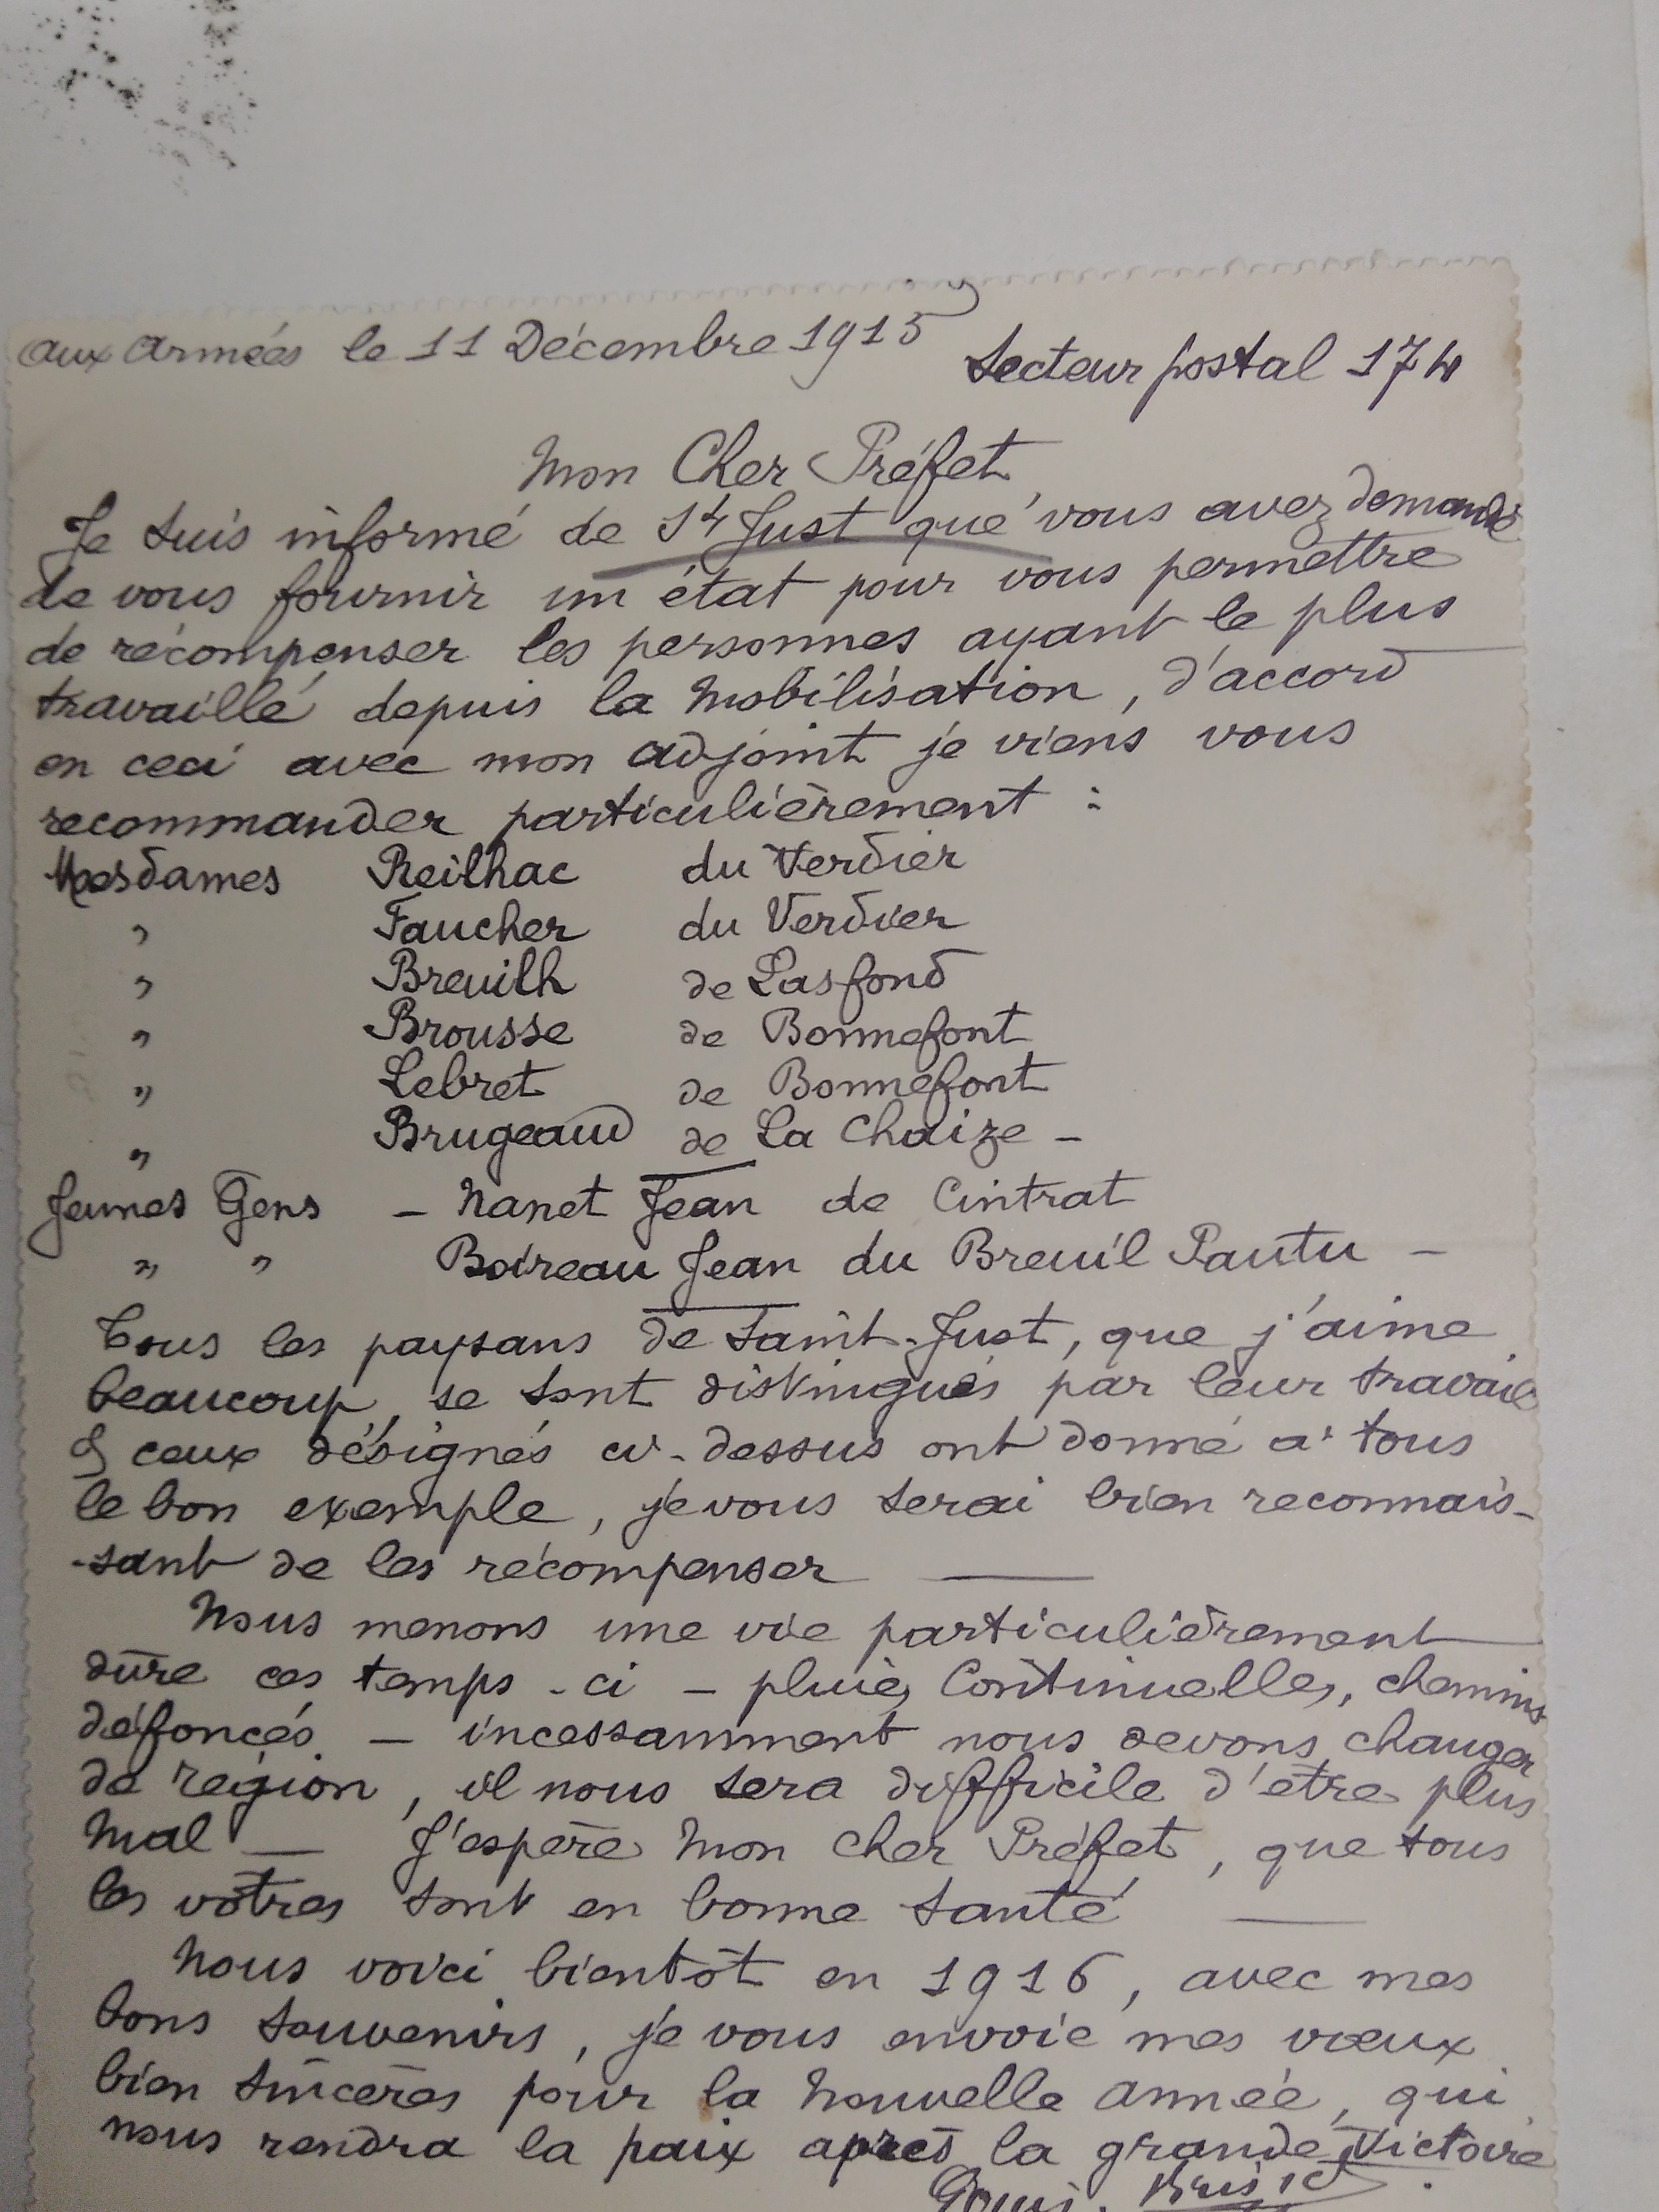 aux Armées le 11 Décembre 1915
Secteur postal 174
Mon Cher Préfet
Je suis informé de St Just que vous avez demandé
de vous fournir un état pour vous permettre
de récompenser les personnes ayant le plus
travaillé depuis la Mobilisation, d'accord
en ceci avec mon adjoint je viens vous
recommander particulièrement :
Mesdames Reilhac du Verdier
" Faucher du Verdier
" Breuilh de Lasfond
" Brousse de Bonnefont
" Lebret de Bonnefont
" Brugeaud de La Chaize -
Jeunes Gens - Nanet Jean de Cintrat
" " Boireau Jean du Breuil Pautu -
Tous les paysans de Saint-Just, que j'aime
beaucoup, se sont distingués par leur travail
& ceux désignés ci-dessus ont donné à tous
le bon exemple, je vous serai bien reconnais-
-sant de les récompenser —
Nous menons une vie particulièrement
dûre ces temps-ci - pluies Continuelles, chemins
défoncés - incessamment nous devons changer
de région, il nous sera difficile d'être plus
Mal — J'espère Mon cher Préfet, que tous
les vôtres sont en bonne santé —
Nous voici bientôt en 1916, avec mes
bons souvenirs, je vous envoie mes vœux
bien sincères pour la Nouvelle Année, qui
nous rendra la paix après la grande Victoire
Louis